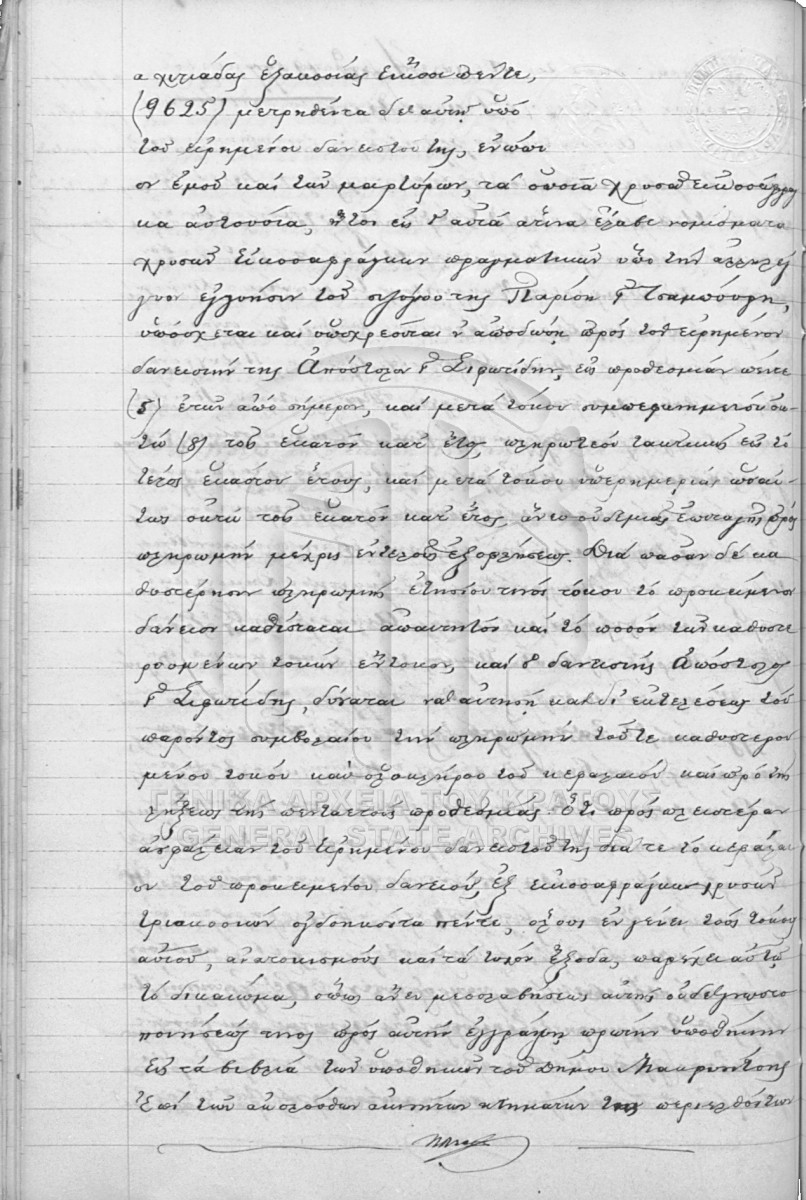 α χιλιάδας ἑξακοσίας εἴκοσι πέντε,
(9625) μετρηθέντα δὲ αὐτῇ ὑπὸ
τοῦ εἰρημένου δανειστοῦ της, ἐνώπι
ον ἐμοῦ καὶ τῶν μαρτύρων, τὰ ὁποῖα χρυσᾶ εἰκοσάφραγ
κα αὐτούσια, ἤτοι εἰς αὐτά ἅτινα ἔλαβε νομίσματα
χρυσῶν εἰκοσαφράγκων πραγματικῶν ὑπὸ τὴν ἀλληλέγ
γυον ἐγγύησιν τοῦ συζύγου της Παρίση Γ. Τσαμπούρη,
ὑπόσχεται καὶ ὑποχρεοῦται ν' ἀποδώσῃ πρὸς τὸν εἰρημένον
δανειστήν της Ἀπόστολον Γ. Σιφωτίδην, εἰς προθεσμίαν πέντε
(5) ἐτῶν ἀπὸ σήμερον, καὶ μετὰ τόκου συμπεφωνημένου ὀκ
τὼ (8) τοῖς ἑκατὸν κατ' ἔτος, πληρωτέου τακτικῶς εἰς τὸ
τέλος ἑκάστου ἔτους, καὶ μετὰ τόκου ὑπερημερίας ὡσαύ-
τως ὀκτὼ τοῖς ἑκατὸν κατ' ἔτος, ἄνευ οὐδεμιᾶς ὀχλήσεως πρὸς
πληρωμὴν μέχρις ἐντελοῦς ἐξοφλήσεως. Διὰ πᾶσαν δὲ κα
θυστέρησιν πληρωμῆς ἐτησίου τινός τόκου τὸ προκείμενον
δάνειον καθίσταται ἀπαιτητόν καὶ τὸ ποσόν τῶν καθυστε
ρουμένων τόκων ἔντοκον, καὶ ὁ δανειστής Ἀπόστολος
Γ. Σιφωτίδης, δύναται νὰ αἰτήσῃ καὶ δι' ἐκτελέσεως τοῦ
παρόντος συμβολαίου τὴν πληρωμὴν τοῦ τε καθυστερου
μένου τόκου καὶ ὁλοκλήρου τοῦ κεφαλαίου καὶ πρὸ τῆς
λήξεως τῆς πενταετοῦς προθεσμίας. Ὅτι πρὸς πλειοτέραν
ἀσφάλειαν τοῦ εἰρημένου δανειστοῦ της διά τε τὸ κεφάλαι
ον τοῦ προκειμένου δανείου, ἐξ εἰκοσαφράγκων χρυσῶν
τριακοσίων ὀγδοήκοντα πέντε, ὅλους ἐν γένει τοὺς τόκους
αὐτοῦ, ἀνατοκισμούς καὶ τὰ τυχόν ἔξοδα, παρέχει αὐτῷ
τὸ δικαίωμα, ὅπως ἄνευ μεσολαβήσεως αὐτῆς οὐδὲ εἰδοπο
ποιήσεώς τινος πρὸς αὐτὴν ἐγγράψῃ πρώτην ὑποθήκην
εἰς τὰ βιβλία τῶν ὑποθηκῶν τοῦ δήμου Μακρυνίτσης
ἐπὶ τῶν ἀκολούθων ἀκινήτων κτημάτων της περιελθόντων
ΓΕΝΙΚΑ ΑΡΧΕΙΑ ΤΟΥ ΚΡΑΤΟΥΣ
GENERAL STATE ARCHIVES